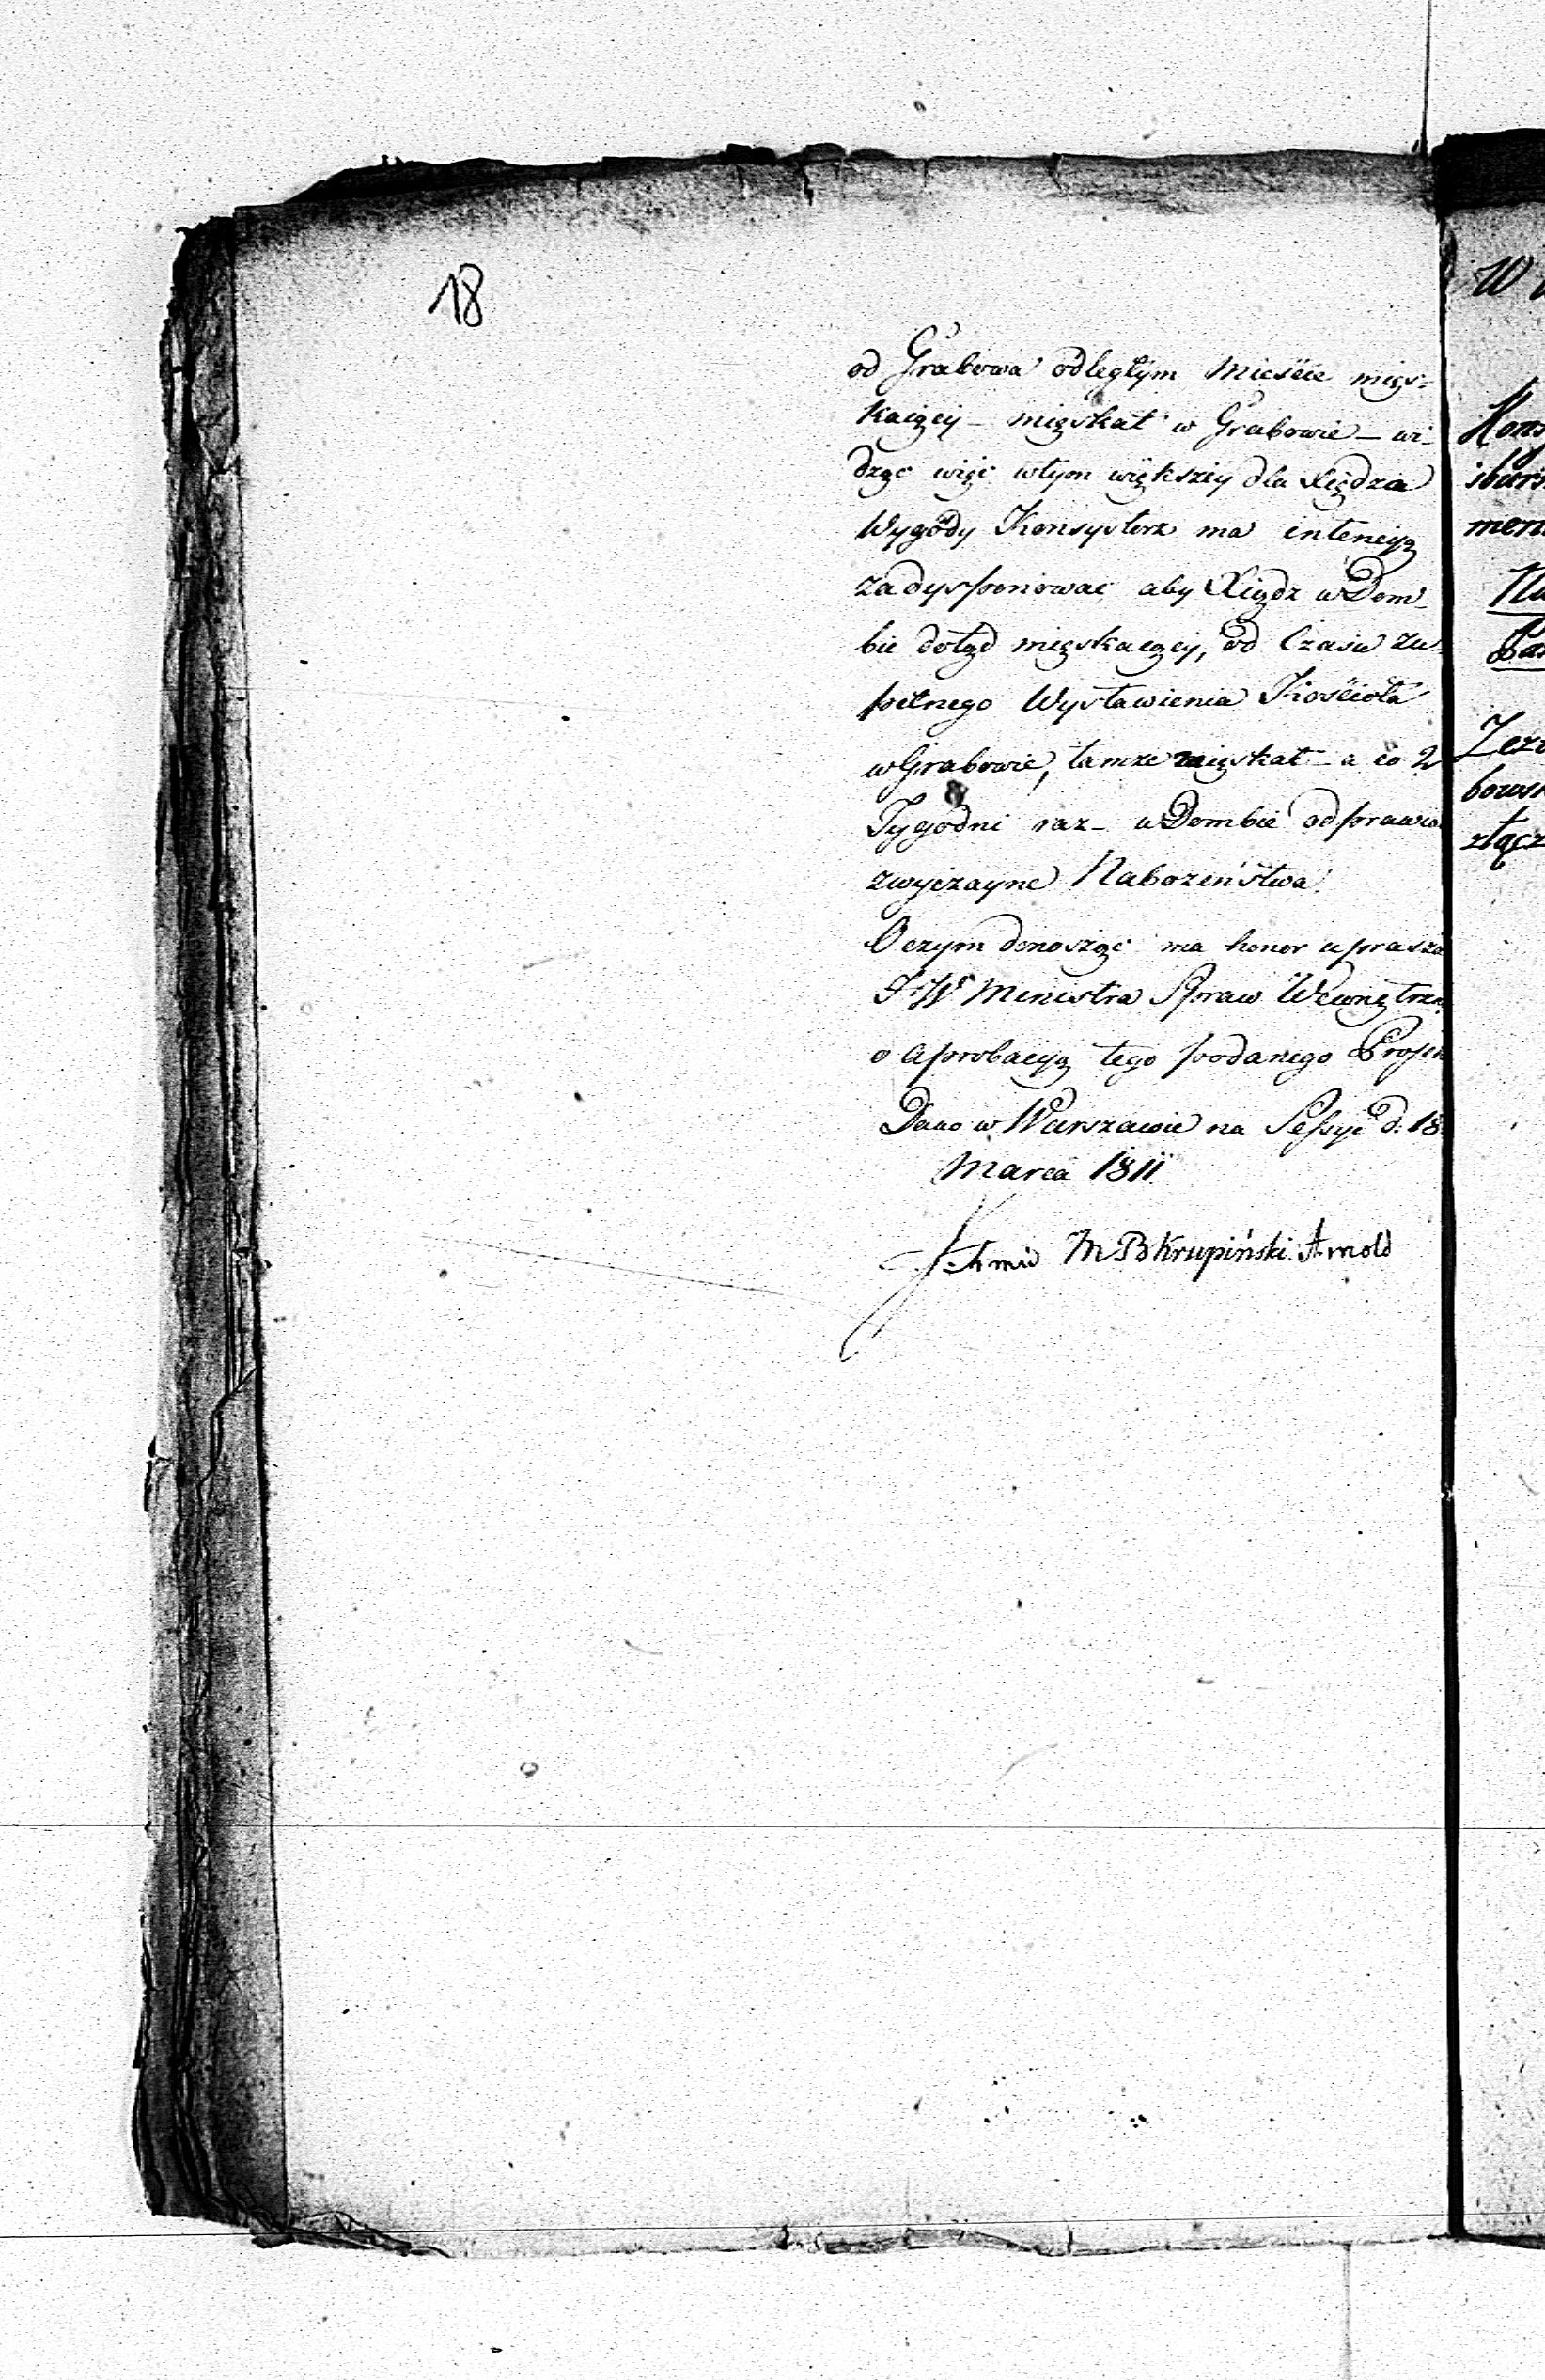 18
od Grabowa odległym Mieście mięs-
kaiącÿ - mięskał w Grabowie - wi-
dząc więc w tym większey dla Xiędza
Wygody Konsystorz ma intencyą
zadysponować, aby Xiądz w Dom-
bie dotąd mięskaiący, od Czasu zu-
pełnego Wystawienia Kościoła
w Grabowie, tamże mięskał - a co 2
Tygodni raz - w Dombie odprawia
zwyczayne Nabożeństwa.
O czym donosząc ma honor uprasza
JW Ministra Spraw Wewnętrzn
o aprobacyą tego podanego Projek
Dano w Warszawie na Sessyi d: 18
Marca 1811
Schmid M B Krupiński. Arnold
W
Kons
zbors
men
Na
Pas
Zezw
bows
złącz